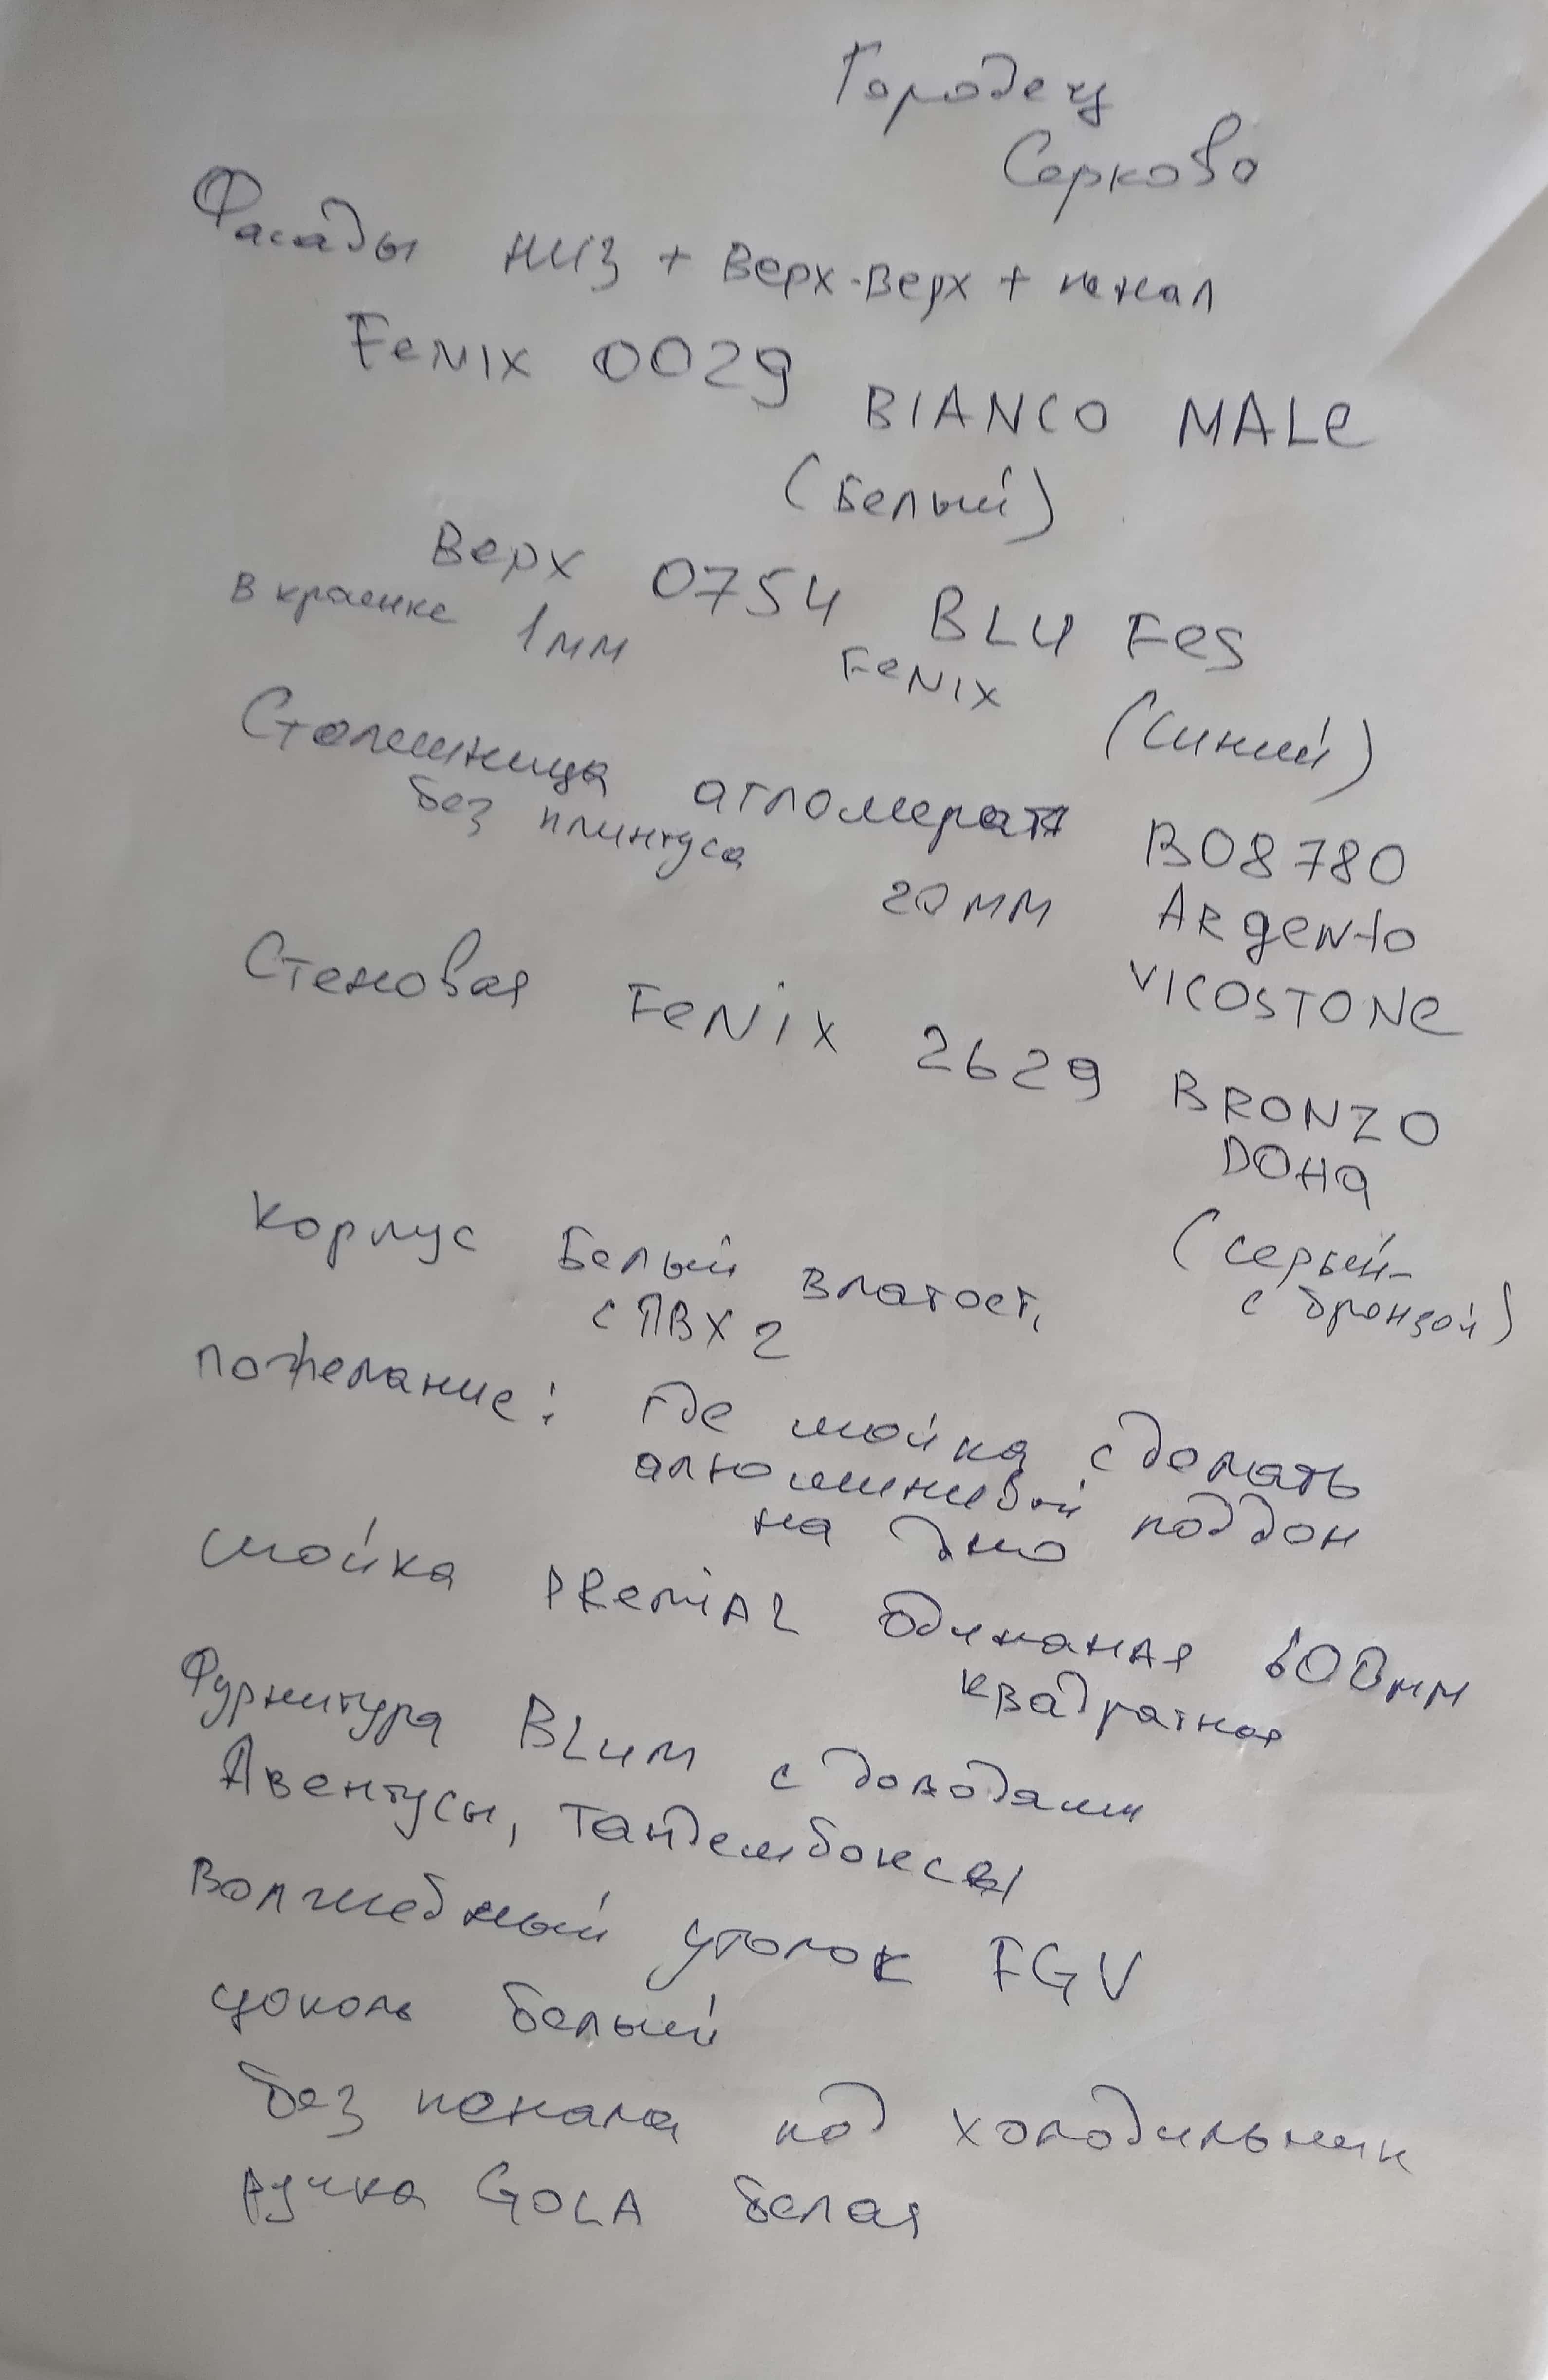 Городец
Серково
Фасады низ + верх-верх + пенал
Fenix 0029 BIANCO MALe
(Белый)
Верх 0754 BLU Fes
в кромке 1мм Fenix (Синий)
Столешница агломерат B08780
без плинтуса 20мм Argento
VICOSTONE
Стеновая Fenix 2629 BRONZO
DOHA
(серый-
с бронзой)
Корпус Белый влагост,
с ПВХ 2
пожелание: где мойка сделать
алюминивой поддон
на дно
мойка PRemiAL 600мм
квадратная
Фурнитура BLUM с доводами
Авентусы, Тандембоксы
Волшебный уголок FGV
цоколь белый
без пенала под холодильник
ручка GOLA белая